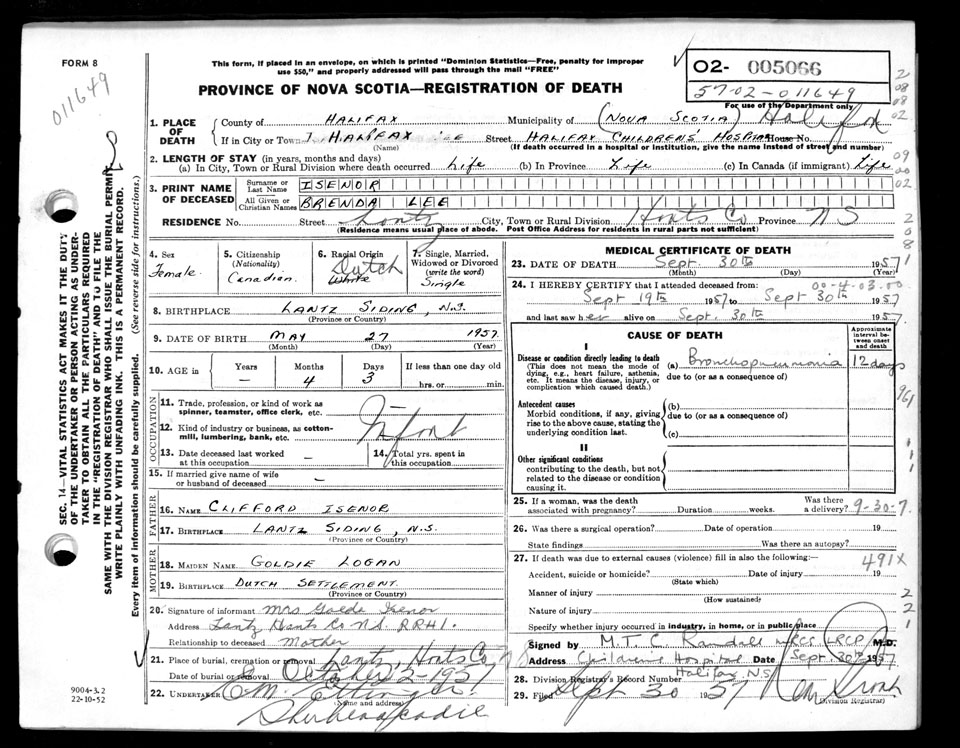 FORM 8
This form, if placed in an envelope, on which is printed "Dominion Statistics—Free, penalty for improper
use $50," and properly addressed will pass through the mail "FREE"
O2- 005066
57-02-011649
For use of the Department only
011649
PROVINCE OF NOVA SCOTIA—REGISTRATION OF DEATH
1. PLACE OF DEATH
County of HALIFAX Municipality of (NOVA SCOTIA) Halifax
If in City or Town HALIFAX Street HALIFAX CHILDRENS' HOSPITAL House No.
(Name) (If death occurred in a hospital or institution, give the name instead of street and number)
2. LENGTH OF STAY (in years, months and days)
(a) In City, Town or Rural Division where death occurred Life (b) In Province Life (c) In Canada (if immigrant) Life
3. PRINT NAME OF DECEASED
Surname or Last Name ISENOR
All Given or Christian Names BRENDA LEE
RESIDENCE No. Street Lantz City, Town or Rural Division Hants Co Province NS
(Residence means usual place of abode. Post Office Address for residents in rural parts not sufficient)
4. Sex
Female.
5. Citizenship
(Nationality)
Canadian.
6. Racial Origin
Dutch
White
7. Single, Married, Widowed or Divorced
(write the word)
Single
8. BIRTHPLACE LANTZ SIDING, N.S.
(Province or Country)
9. DATE OF BIRTH MAY 27 1957
(Month) (Day) (Year)
10. AGE in
Years Months Days If less than one day old
— 4 3 hrs. or min.
OCCUPATION
11. Trade, profession, or kind of work as spinner, teamster, office clerk, etc. —
12. Kind of industry or business, as cotton-mill, lumbering, bank, etc. Infant
13. Date deceased last worked at this occupation —
14. Total yrs. spent in this occupation
15. If married give name of wife or husband of deceased —
FATHER
16. NAME CLIFFORD ISENOR
17. BIRTHPLACE LANTZ SIDING, N.S.
(Province or Country)
MOTHER
18. MAIDEN NAME GOLDIE LOGAN
19. BIRTHPLACE DUTCH SETTLEMENT.
(Province or Country)
20. Signature of informant Mrs Isenor
Address Lantz Hants Co N.S. RR#1.
Relationship to deceased Mother
21. Place of burial, cremation or removal Lantz, Hants Co
Date of burial or removal October 2-1957
22. UNDERTAKER Ettinger
(Name and address)
Shubenacadie
9004-3.2
22-10-52
MEDICAL CERTIFICATE OF DEATH
23. DATE OF DEATH Sept. 30th 1957
(Month) (Day) (Year)
00-4-03.00
24. I HEREBY CERTIFY that I attended deceased from:
Sept 19th 1957 to Sept 30th 1957
and last saw her alive on Sept. 30th 1957.
CAUSE OF DEATH
Approximate interval between onset and death
I
Disease or condition directly leading to death
(This does not mean the mode of dying, e.g., heart failure, asthenia, etc. It means the disease, injury, or complication which caused death.)
(a) Bronchopneumonia 12 days
due to (or as a consequence of)
Antecedent causes
Morbid conditions, if any, giving rise to the above cause, stating the underlying condition last.
(b)
due to (or as a consequence of)
(c)
II
Other significant conditions
contributing to the death, but not related to the disease or condition causing it.
25. If a woman, was the death associated with pregnancy? Duration weeks. Was there a delivery? 9-30-7
26. Was there a surgical operation? Date of operation 19
State findings Was there an autopsy?
27. If death was due to external causes (violence) fill in also the following:—
491X
Accident, suicide or homicide? Date of injury 19
(State which)
Manner of injury
(How sustained)
Nature of injury
Specify whether injury occurred in industry, in home, or in public place
Signed by M.T.C. Randall MRCS LRCP M.D.
Address Childrens Hospital Date Sept. 30th 1957
Halifax, N.S.
28. Division Registrar's Record Number
29. Filed Sept 30 1957
(Division Registrar)
SEC. 14—VITAL STATISTICS ACT MAKES IT THE DUTY
OF THE UNDERTAKER OR PERSON ACTING AS UNDER-
TAKER TO OBTAIN ALL THE PARTICULARS REQUIRED
IN THE "REGISTRATION OF DEATH" AND TO FILE THE
SAME WITH THE DIVISION REGISTRAR WHO SHALL ISSUE THE BURIAL PERMIT
WRITE PLAINLY WITH UNFADING INK. THIS IS A PERMANENT RECORD.
Every item of information should be carefully supplied. (See reverse side for instructions.)